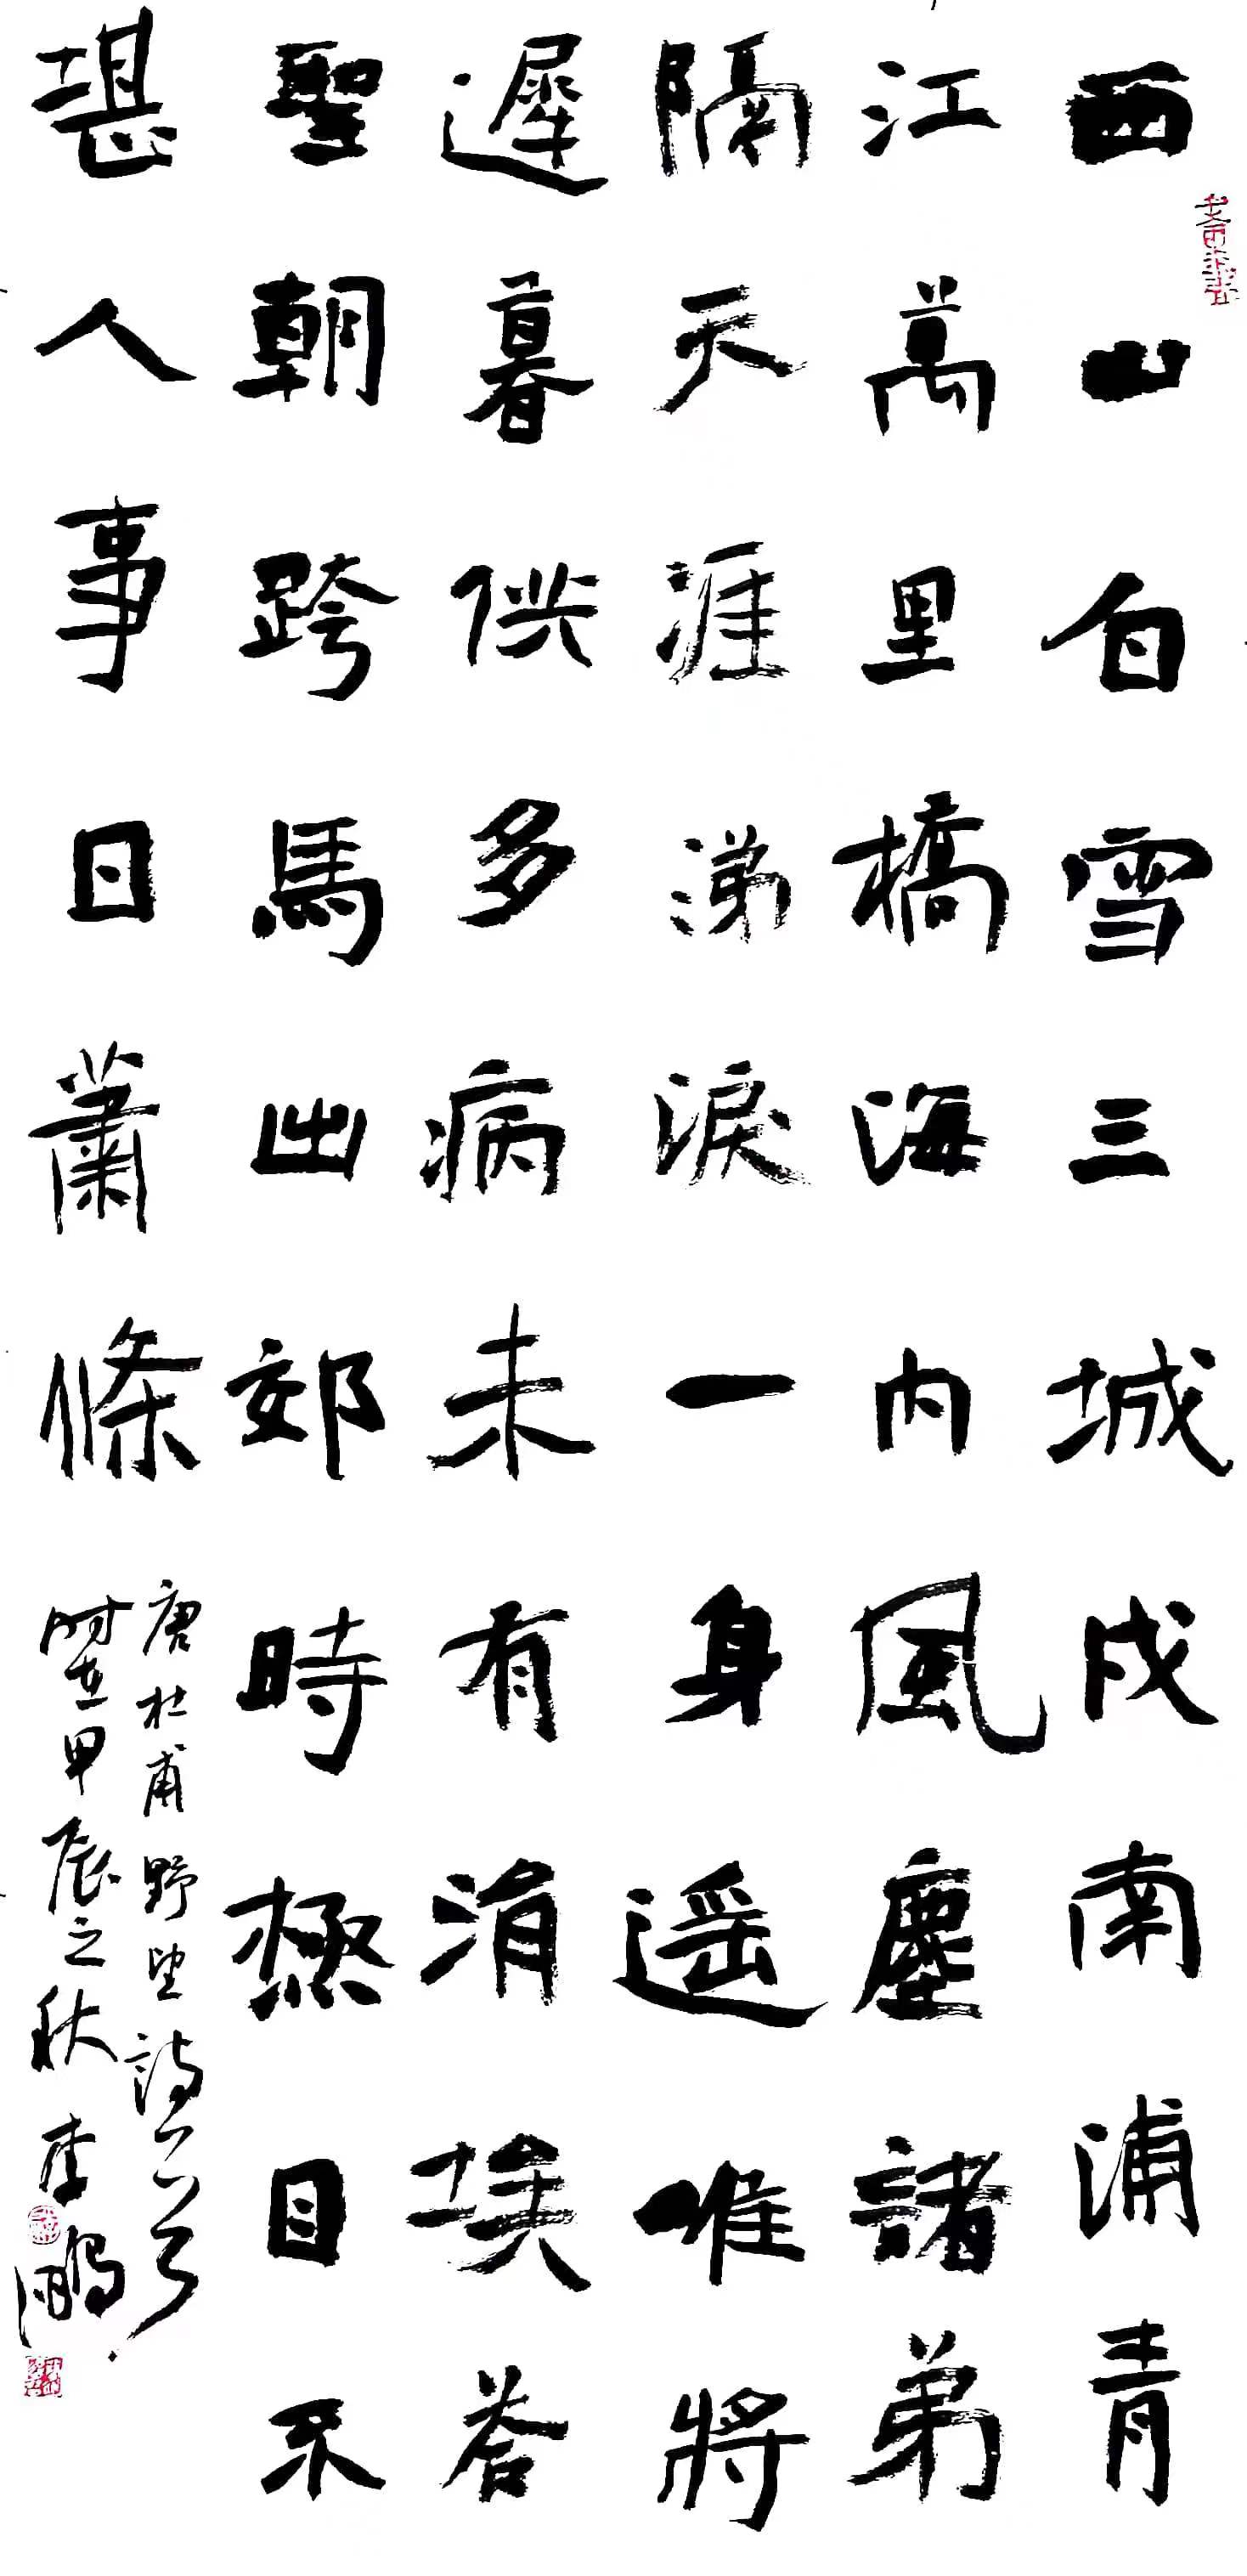 西山白雪三城戍南浦青
江萬里橋海内風塵諸弟
隔天涯涕淚一身遥唯將
遲暮供多病未有涓埃答
聖朝跨馬出郊時極目不
堪人事日蕭條
唐杜甫野望詩一首
時在甲辰之秋李鵬